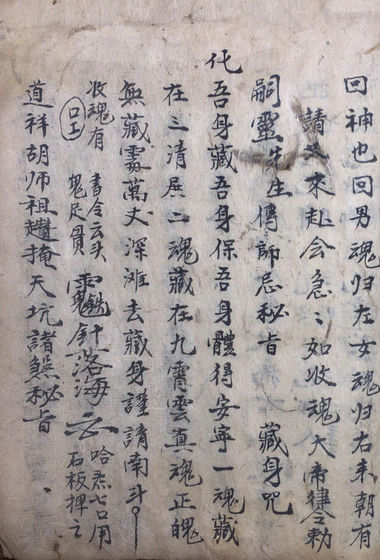 回神也回男魂归左女魂归右来朝有
請文来赴会急〻如收魂大帝律令勅
嗣靈先生傳師忌秘旨　藏身咒
化吾身藏吾身保吾身體得安寧一魂藏
在三清居二魂藏在九霄雲真魂正魄
無藏霧萬丈深滩去藏身謹請南斗
收魂有書令云头针落海哈炁七口用
鬼足員石板押之
道祥胡师祖趲掩天坑諸煞秘旨